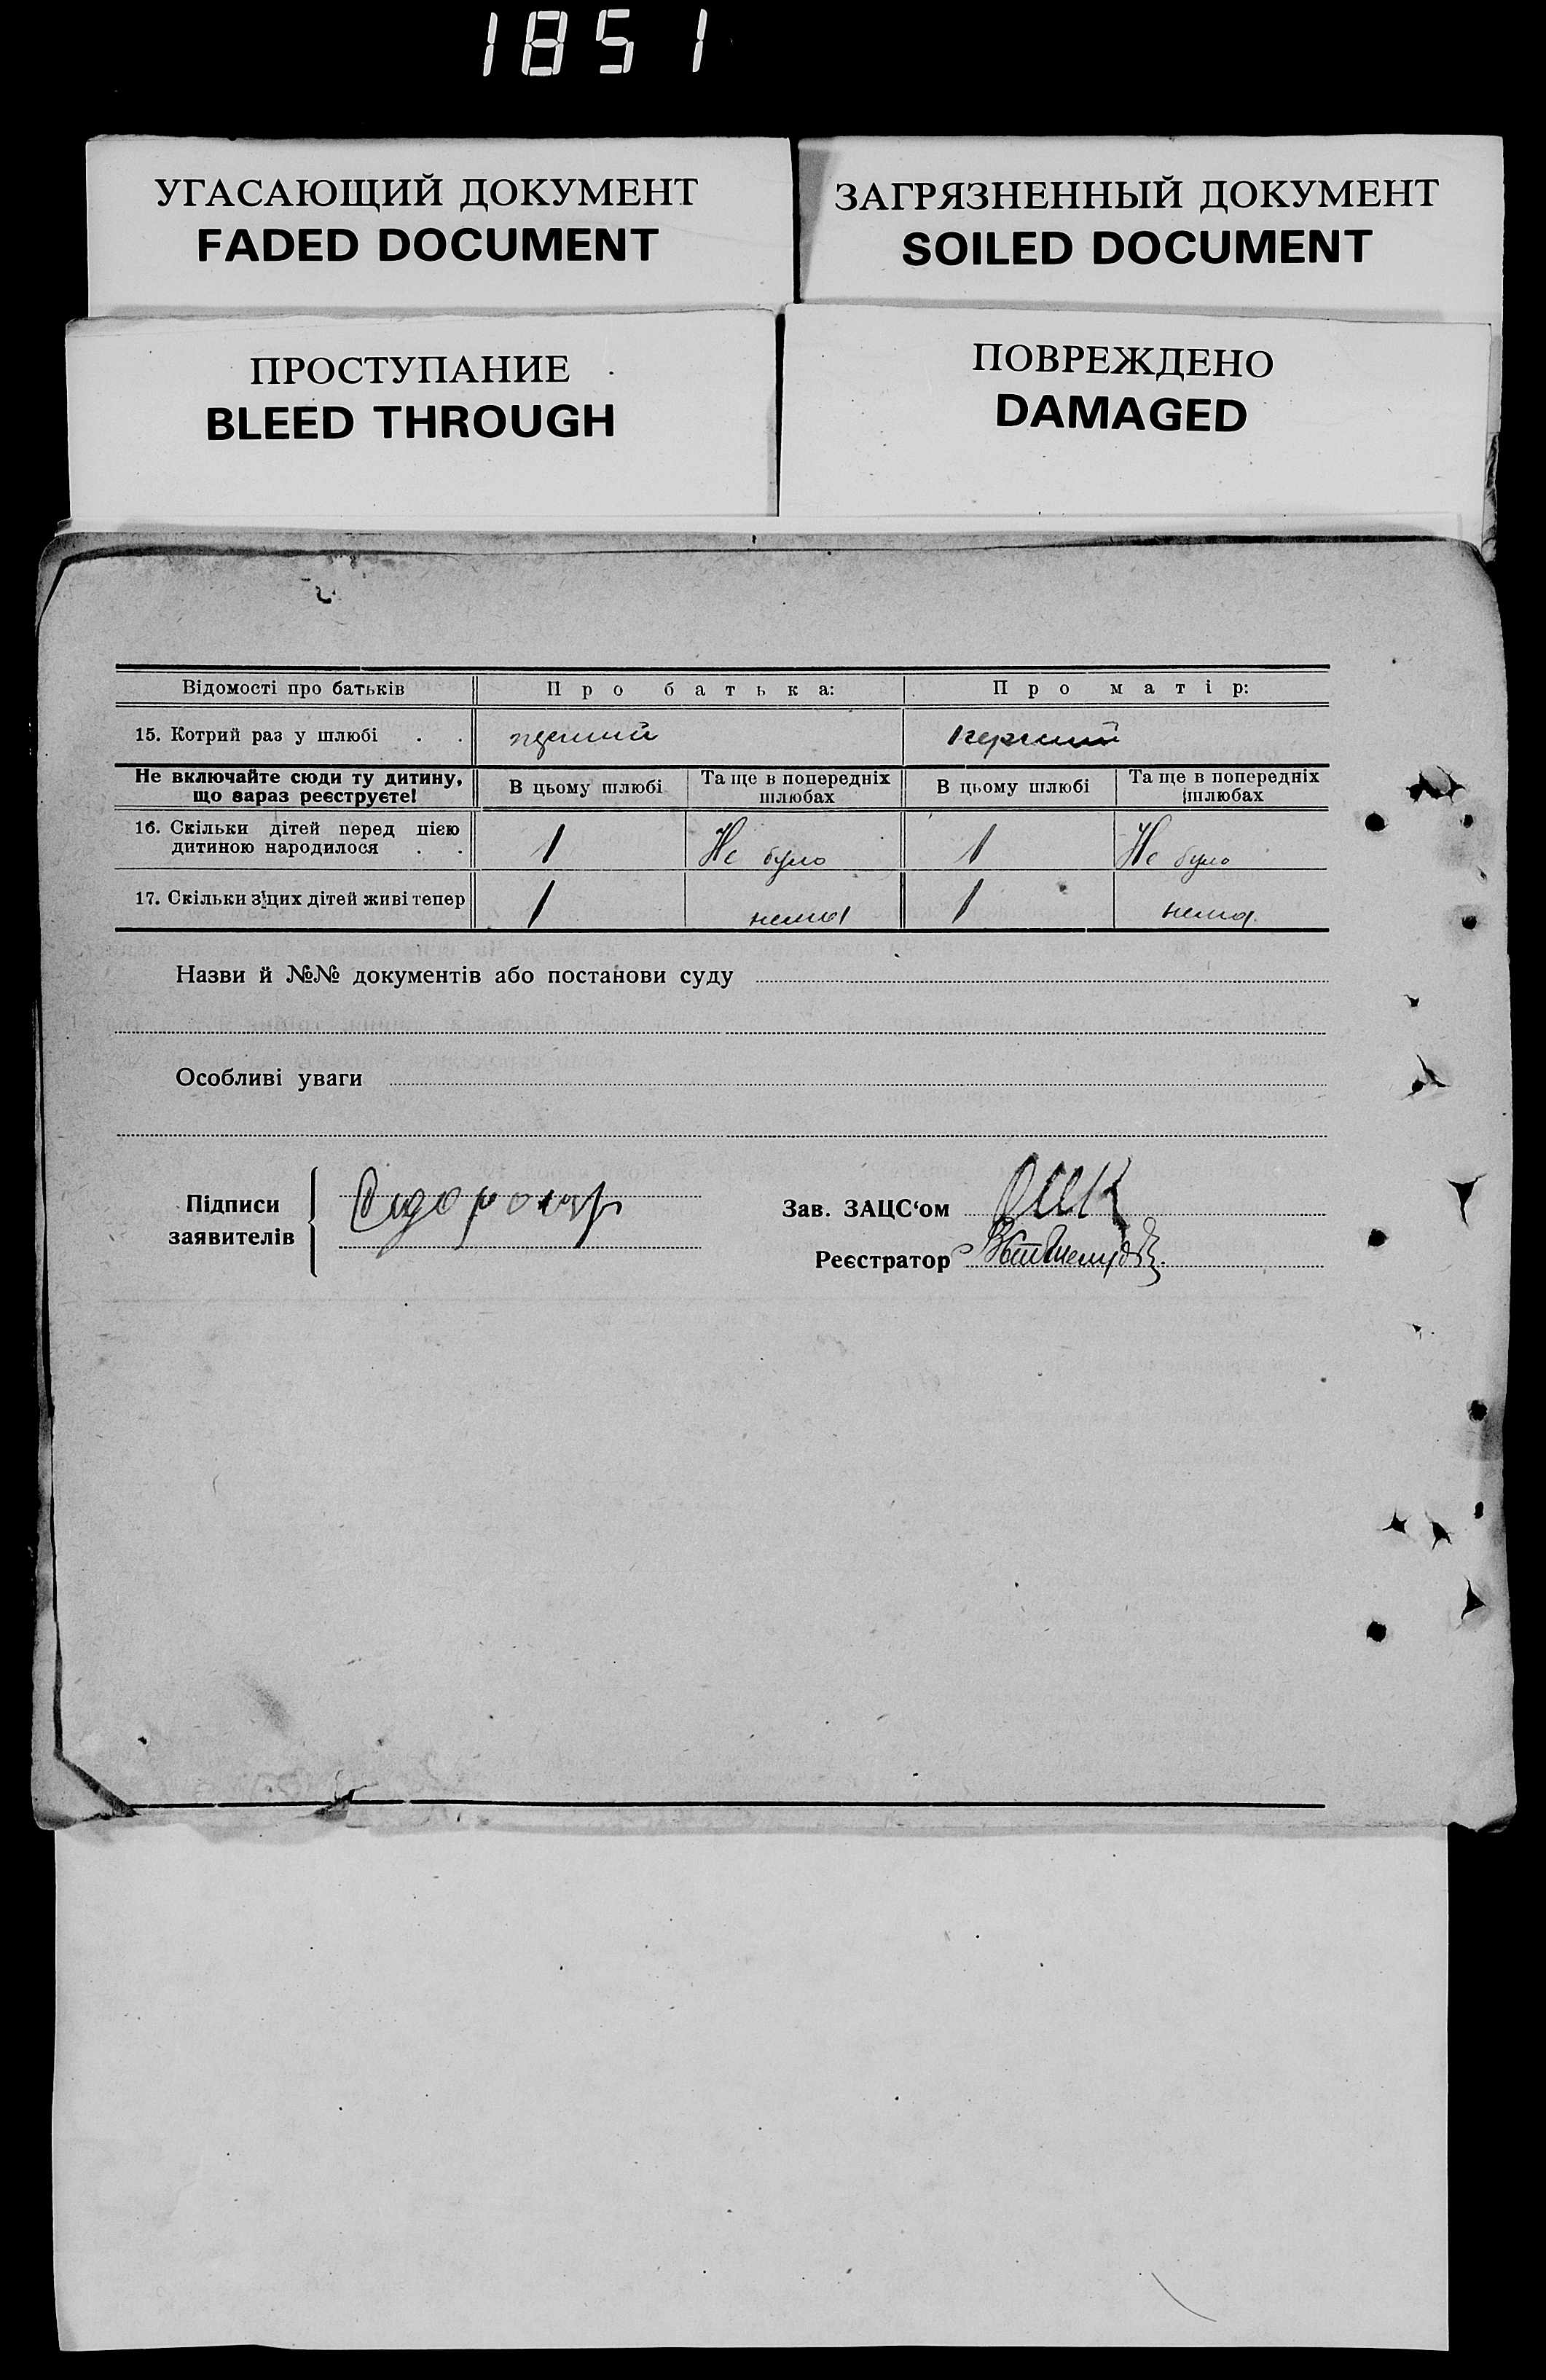 1851
УГАСАЮЩИЙ ДОКУМЕНТ
FADED DOCUMENT
ЗАГРЯЗНЕННЫЙ ДОКУМЕНТ
SOILED DOCUMENT
ПРОСТУПАНИЕ
BLEED THROUGH
ПОВРЕЖДЕНО
DAMAGED
Відомості про батьків Про батька: Про матір:
15. Котрий раз у шлюбі . . перший перший
Не включайте сюди ту дитину, що зараз реєструєте! В цьому шлюбі Та ще в попередніх шлюбах В цьому шлюбі Та ще в попередніх шлюбах
16. Скільки дітей перед цією дитиною народилося . . 1 Не було 1 Не було
17. Скільки з цих дітей живі тепер 1 нема 1 нема
Назви й №№ документів або постанови суду
Особливі уваги
Підписи заявителів
Зав. ЗАЦС‘ом
Реєстратор